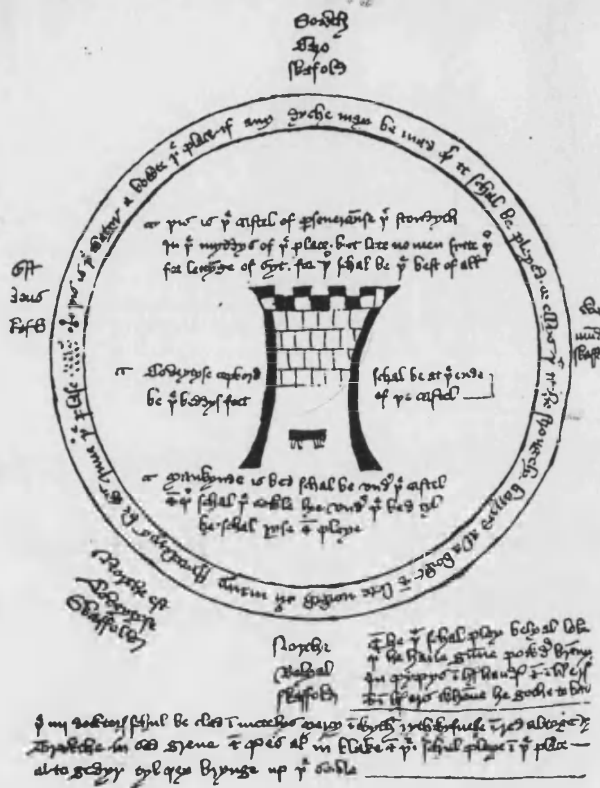 Sowth
Caro
skafold
þis is þe watyr a bowte þe place if any dyche may be mad þer it schal be pleyed or ellys þat it be strongely barryd al a bowt & lete nowth ouyr many stytelerys be wyth inne þe plase
þis is þe castel of perseueraunse þat stondyth
In þe myddys of þe place but lete no men sytte þer
for lettynge of syt for þer schal be þe best of all
Est
deus
skafold
mund
skaf
Coveytyse copbord
be þe beddys feet
schal be at þe ende
of þe castel
Mankynde is bed schal be vndyr þe castel
& þer schal þe sowle lye vndyr þe bed tyl
he schal ryse & pleye
Northe est
Coveytyse
Skaffold
Northe
Belyal
skaffold
& he þat schal pley belyal loke
þat he haue gunne powdyr brennynge
In pypys in hys handys & in hys erys
& in hys ars whanne he gothe to batayl
þe iiij dowterys schul be clad in mentelys Mercy in wyth rythwysnesse in red al togedyr
Trewthe in sad grene & Pes al in blake & þei schul pleye in þe place
al to gedyr tyl þey brynge up þe sowle